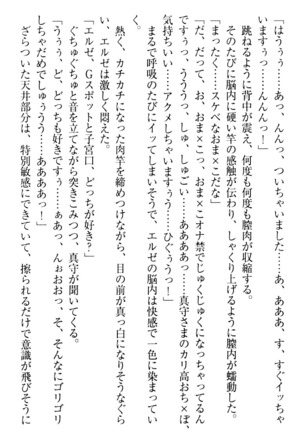 「はうぅ……あっ、んんっ、ついちゃいました……ああぁ、す、すぐイッちゃ
いますぅっ……んんんっ！」
跳ねるように背中が震え、何度も何度も膣肉が収縮する。
そのたびに脳内に硬い竿の感触が伝わり、しゃくり上げるように膣内が蠕動した。
「まったく……スケベなおま×こだな」
「だ、だって、お、おま×こっ、おま×こオナ禁でじゅくじゅくになっちゃってるん
ですぅっ、うううっ、しゅ、しゅごい……ああああっ……真守さまのカリ高おち×ぽ、
気持ちいい……アクメしちゃいますぅう……ひぐぅうっ！」
まるで呼吸のたびにイッてしまいそうで、エルゼの脳内は快感で一色に染まってい
た。
熱く、カチカチになった肉竿を締めつけながら、目の前が真っ白になりそうなぐら
い、エルゼは激しく悶えた。
「エルゼ、Gスポットと子宮口、どっちが好き？」
ぐちゅぐちゅと音を立てながら突きこみつつ、真守が聞いてくる。
「うぅぅ、ど、どっちも好きですぅ……ぁあっ、んぉおおっ、そ、そんなにゴリゴリ
しちゃだめでしゅぅう……ああああっ！」
ざらついた天井部分は、特別敏感にできていて、擦られるだけで意識が飛びそうに